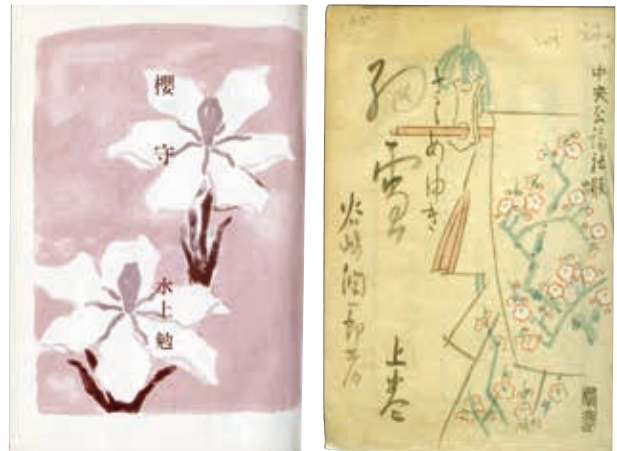 櫻守
水上勉
中央公論社版
細雪
さゝめゆき
谷崎潤一郎著
上巻